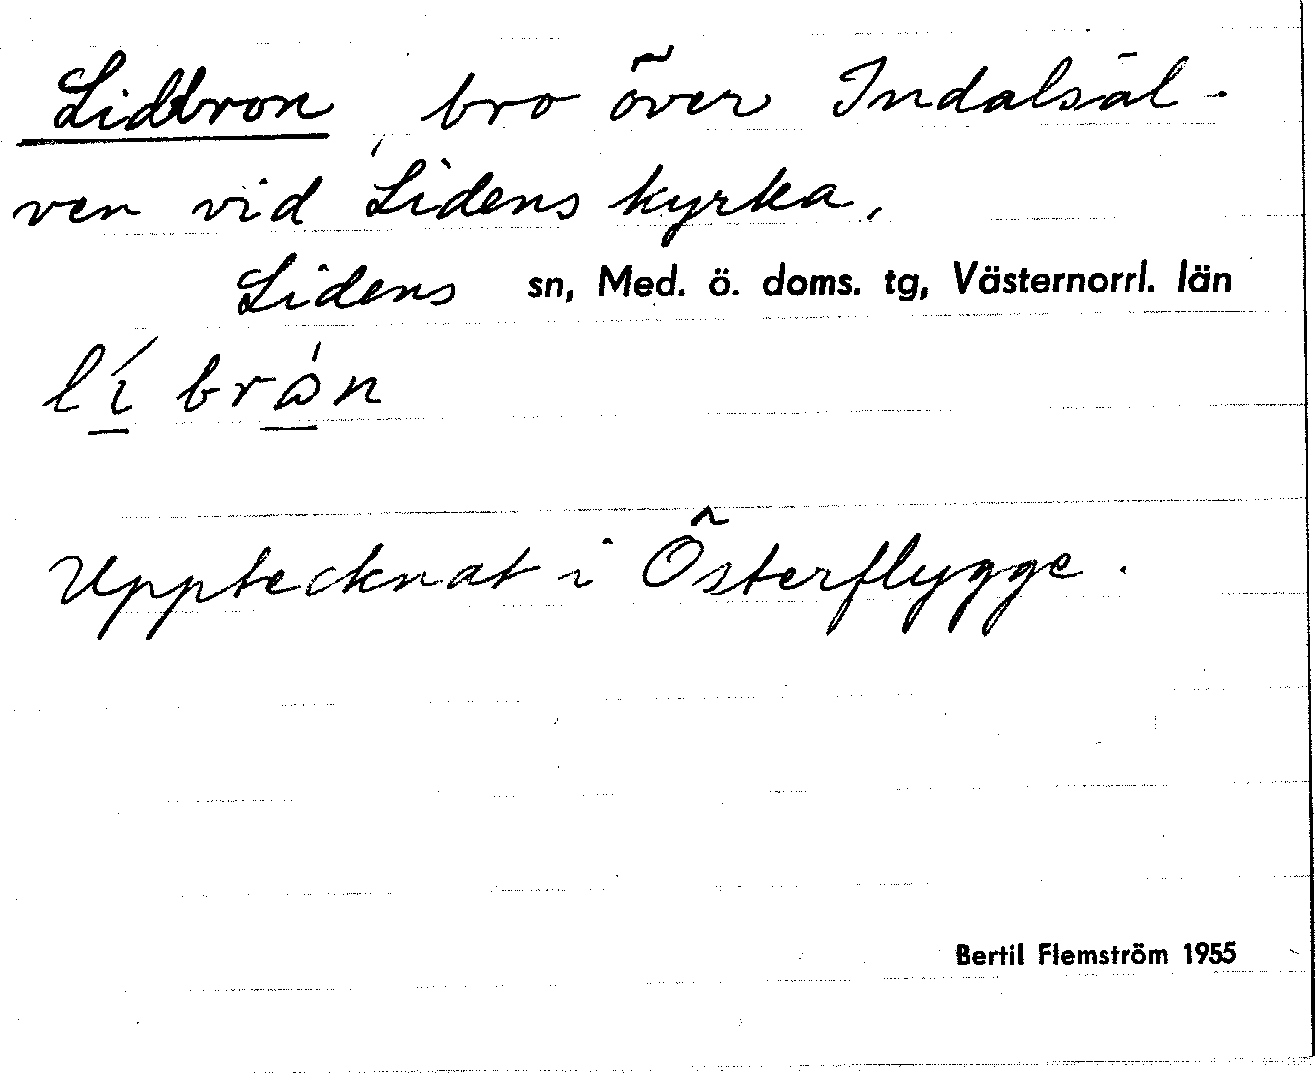 Lidbron, bro över Indalsäl-
ven vid Lidens kyrka.
Lidens sn, Med. ö. doms. tg, Västernorrl. län
lí brꞷ́n
Upptecknat i Österflygge.
Bertil Flemström 1955